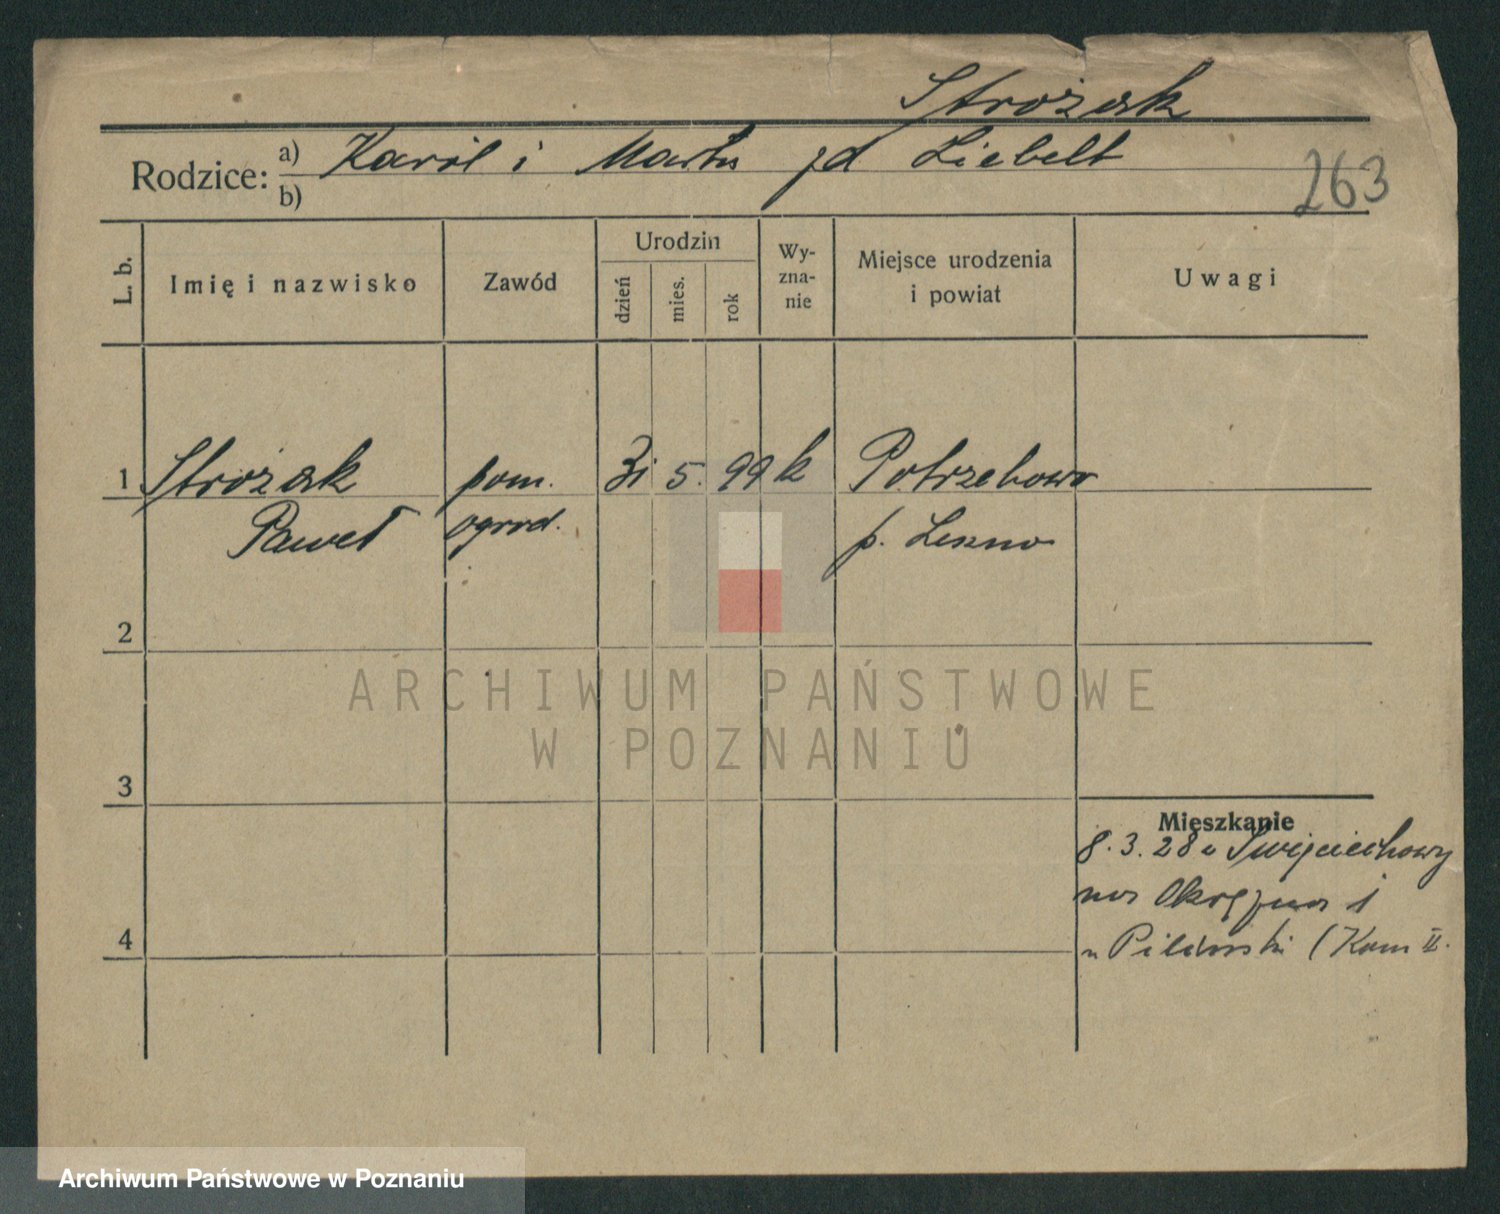 Strożak
Rodzice: a) Karól i Marta zd Liebelt
b)
263
L. b.
Imię i nazwisko
Zawód
Urodzin
dzień
mies.
rok
Wy-
zna-
nie
Miejsce urodzenia
i powiat
Uwagi
1 Strożak pom. 31 5. 99 k Potrzebowo
Paweł ogrod. p. Leszno
2
3
4
Mieszkanie
8.3.28 z Święciechowy
na Okrężna 1
u Pilarski (Kom II.
ARCHIWUM PAŃSTWOWE
W POZNANIU
Archiwum Państwowe w Poznaniu